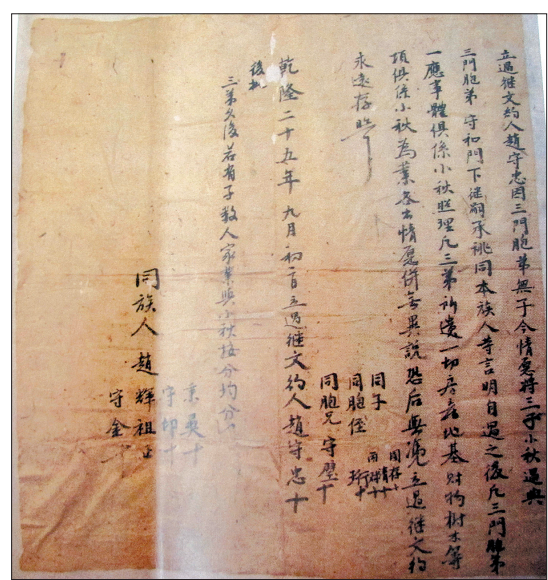 立過继文約人趙守忠因三門胞弟無子今情愿将三子小秋過與
三門胞弟守和門下継嗣承祧同本族人等言明自過之後凡三門胞弟
一應事體俱係小秋照理凡三弟所遺一切房産地基財物樹木等
項俱係小秋為業各出情愿併無異說恐后無凴立過継文約
永遠存照
同子
同胞侄 珩十
同胞兄守璧十
乾隆二十五年九月初一日立過继文約人趙守忠十
後批
三弟久後若有子数人家業與小秋按分均分
守印十
同族人趙輝祖
守金十